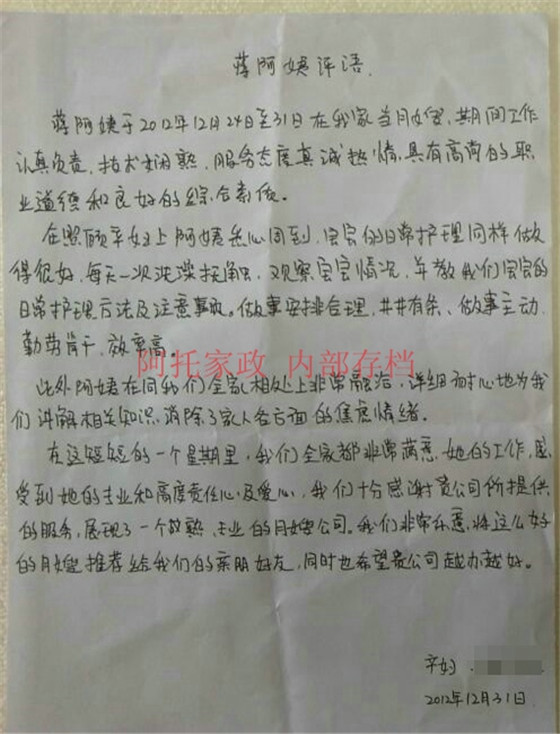 蒋阿姨评语.
蒋阿姨于2012年12月24日至31日在我家当月嫂,期间工作
认真负责,技术娴熟,服务态度真诚热情,具有高尚的职
业道德和良好的综合素质。
在照顾产妇上阿姨悉心周到,宝宝的日常护理同样做
得很好,每天一次洗澡抚触,观察宝宝情况,并教我们宝宝的
日常护理方法及注意事项。做事安排合理,井井有条、做事主动,
勤劳肯干,效率高。
阿托家政 内部存档
此外阿姨在同我们全家相处上非常融洽,详细耐心地为我
们讲解相关知识,消除了家人各方面的焦虑情绪。
在这短短的一个星期里,我们全家都非常满意她的工作,感
受到她的专业和高度责任心及爱心,我们十分感谢贵公司所提供
的服务,展现了一个成熟,专业的月嫂公司。我们非常乐意将这么好
的月嫂推荐给我们的亲朋好友,同时也希望贵公司越办越好。
2012年12月31日.